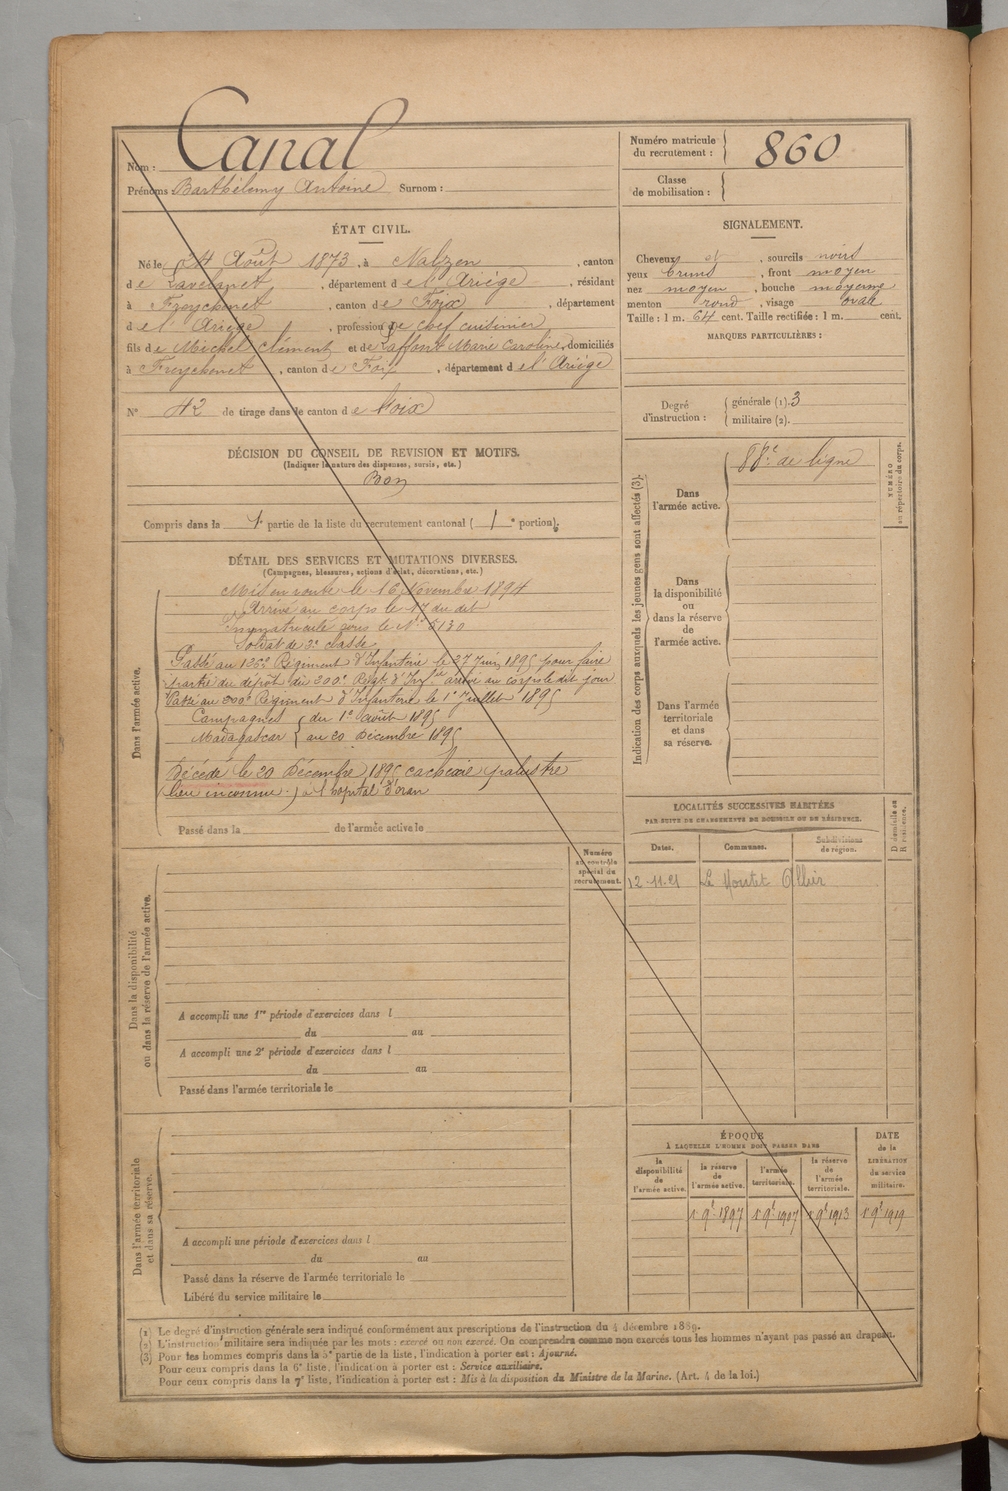 Nom : Canal
Prénoms Barthélemy Antoine Surnom :
Numéro matricule
du recrutement : 860
Classe
de mobilisation :
ÉTAT CIVIL.
Né le 24 Août 1873, à Nalzen, canton
de Lavelanet, département de l'Ariège, résidant
à Freychenet, canton de Foix, département
de l'Ariège, profession de chef cuisinier
fils de Michel Clément et de Laffont Marie Caroline, domiciliés
à Freychenet, canton de Foix, département de l'Ariège
N° 42 de tirage dans le canton de Foix
SIGNALEMENT.
Cheveux et, sourcils noirs
yeux bruns, front moyen
nez moyen, bouche moyenne
menton rond, visage ovale
Taille : 1 m. 64 cent. Taille rectifiée : 1 m. cent.
MARQUES PARTICULIÈRES :
Degré
d'instruction :
générale (1). 3
militaire (2).
DÉCISION DU CONSEIL DE REVISION ET MOTIFS.
(Indiquer la nature des dispenses, sursis, etc.)
Bon
Compris dans la 1e partie de la liste du recrutement cantonal ( 1 e portion).
DÉTAIL DES SERVICES ET MUTATIONS DIVERSES.
(Campagnes, blessures, actions d'éclat, décorations, etc.)
Dans l'armée active.
Mis en route le 16 Novembre 1894
Arrivé au corps le 17 du dit
Immatriculé sous le N° 5130
Soldat de 2e classe
Passé au 126e Régiment d'Infanterie le 27 Juin 1895 pour faire
partie du dépôt du 200e Régt d'Infie arrivé au corps le dit jour
Passé au 200e Régiment d'Infanterie le 1er Juillet 1895
Campagnes du 1er Août 1895
Madagascar au 20 Décembre 1895
Décédé le 20 Décembre 1895 cachexie palustre
(lieu inconnu.) à l'hopital d'oran
Passé dans la de l'armée active le
Indication des corps auxquels les jeunes gens sont affectés (3).
Dans
l'armée active.
88e de ligne
NUMÉRO
au répertoire du corps.
Dans
la disponibilité
ou
dans la réserve
de
l'armée active.
Dans l'armée
territoriale
et dans
sa réserve.
LOCALITÉS SUCCESSIVES HABITÉES
PAR SUITE DE CHANGEMENTS DE DOMICILE OU DE RÉSIDENCE.
D domicile ou
R résidence.
Dates. Communes. Subdivisions
de région.
12-11-91 Le Montet Allier
Numéro
au contrôle
spécial du
recrutement.
Dans la disponibilité
ou dans la réserve de l'armée active.
A accompli une 1re période d'exercices dans l
du au
A accompli une 2e période d'exercices dans l
du au
Passé dans l'armée territoriale le
Dans l'armée territoriale
et dans sa réserve.
A accompli une période d'exercices dans l
du au
Passé dans la réserve de l'armée territoriale le
Libéré du service militaire le
ÉPOQUE
À LAQUELLE L'HOMME DOIT PASSER DANS
la
disponibilité
de
l'armée active.
la réserve
de
l'armée active.
l'armée
territoriale.
la réserve
de
l'armée
territoriale.
DATE
de la
LIBÉRATION
du service
militaire.
1er 9bre 1897 1er 9bre 1907 1er 9bre 1913 1er 9bre 1919
(1) Le degré d'instruction générale sera indiqué conformément aux prescriptions de l'instruction du 4 décembre 1889.
(2) L'instruction militaire sera indiquée par les mots : exercé ou non exercé. On comprendra comme non exercés tous les hommes n'ayant pas passé au drapeau.
(3) Pour les hommes compris dans la 5e partie de la liste, l'indication à porter est : Ajourné.
Pour ceux compris dans la 6e liste, l'indication à porter est : Service auxiliaire.
Pour ceux compris dans la 7e liste, l'indication à porter est : Mis à la disposition du Ministre de la Marine. (Art. 4 de la loi.)